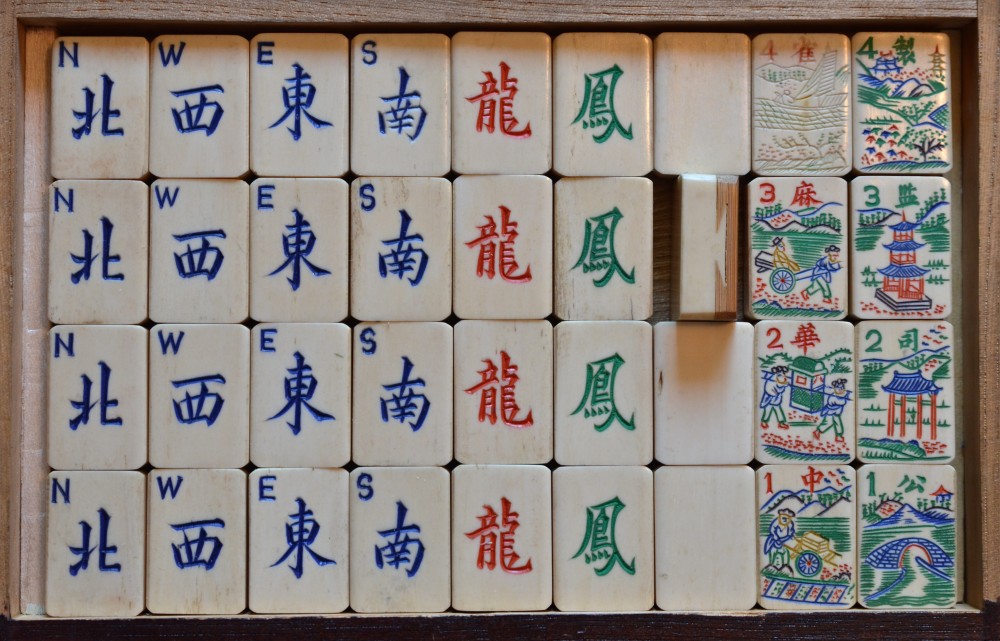 N 北 W 西 E 東 S 南 龍 鳳 4 雀 4 製
N 北 W 西 E 東 S 南 龍 鳳 3 麻 3 監
N 北 W 西 E 東 S 南 龍 鳳 2 華 2 司
N 北 W 西 E 東 S 南 龍 鳳 1 中 1 公